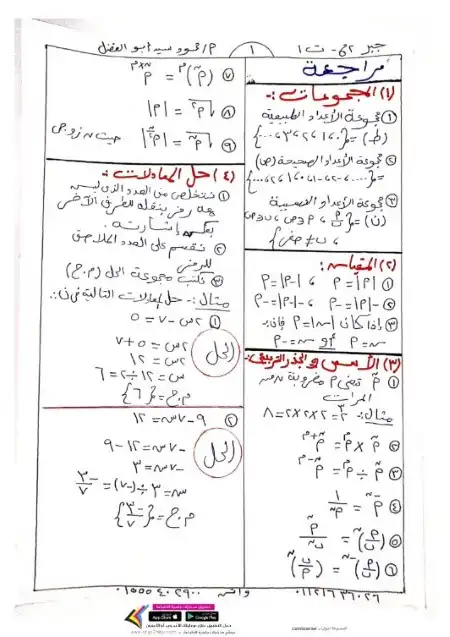 جبر ٢ع - ت١
١
م/ محمود سيد أبو الفضل
مراجعة
(١) المجموعات :-
① مجموعة الأعداد الطبيعية
(ط) = {٠، ١، ٢، ٣، ...}
② مجموعة الأعداد الصحيحة (ص)
= {...، -٢، -١، ٠، ١، ٢، ...}
③ مجموعة الأعداد النسبية
(ن) = {أ/ب ، أ ∈ ص، ب ∈ ص
، ب ≠ صفر}
(٢) المقياس :
① |أ| = أ ، |-أ| = أ
② -|أ| = -أ ، -|-أ| = -أ
③ إذا كان |س| = أ فإن:
س = أ أو س = -أ
(٣) الأسس والجذر التربيعى :
① أⁿ تعنى أ مضروبة ن من
المرات
مثال: ٢³ = ٢×٢×٢ = ٨
② أⁿ × أᵐ = أⁿ⁺ᵐ
③ أⁿ ÷ أᵐ = أⁿ⁻ᵐ
④ أ⁻ⁿ = ١/أⁿ
⑤ (أ/ب)ⁿ = أⁿ/بⁿ
⑥ (أ/ب)⁻ⁿ = (ب/أ)ⁿ
⑦ (أⁿ)ᵐ = أⁿˣᵐ
⑧ √أ² = |أ|
⑨ حيث ن زوجى
(٤) حل المعادلات :
① نتخلص من العدد الذى ليس
معه رمز بنقله للطرف الآخر
بعكس إشارته
② نقسم على العدد الملاصق
للرمز
③ نكتب مجموعة الحل (م.ح)
مثال :- حل المعادلات التالية فى ن :
① ٢س - ٧ = ٥
الحل
٢س = ٥ + ٧
٢س = ١٢
س = ١٢ ÷ ٢ = ٦
م.ح = {٦}
② ٩ - ٧س = ١٢
الحل
-٧س = ١٢ - ٩
-٧س = ٣
س = ٣ ÷ (-٧) = -٣/٧
م.ح = {-٣/٧}
واتس
App Store
Google Play